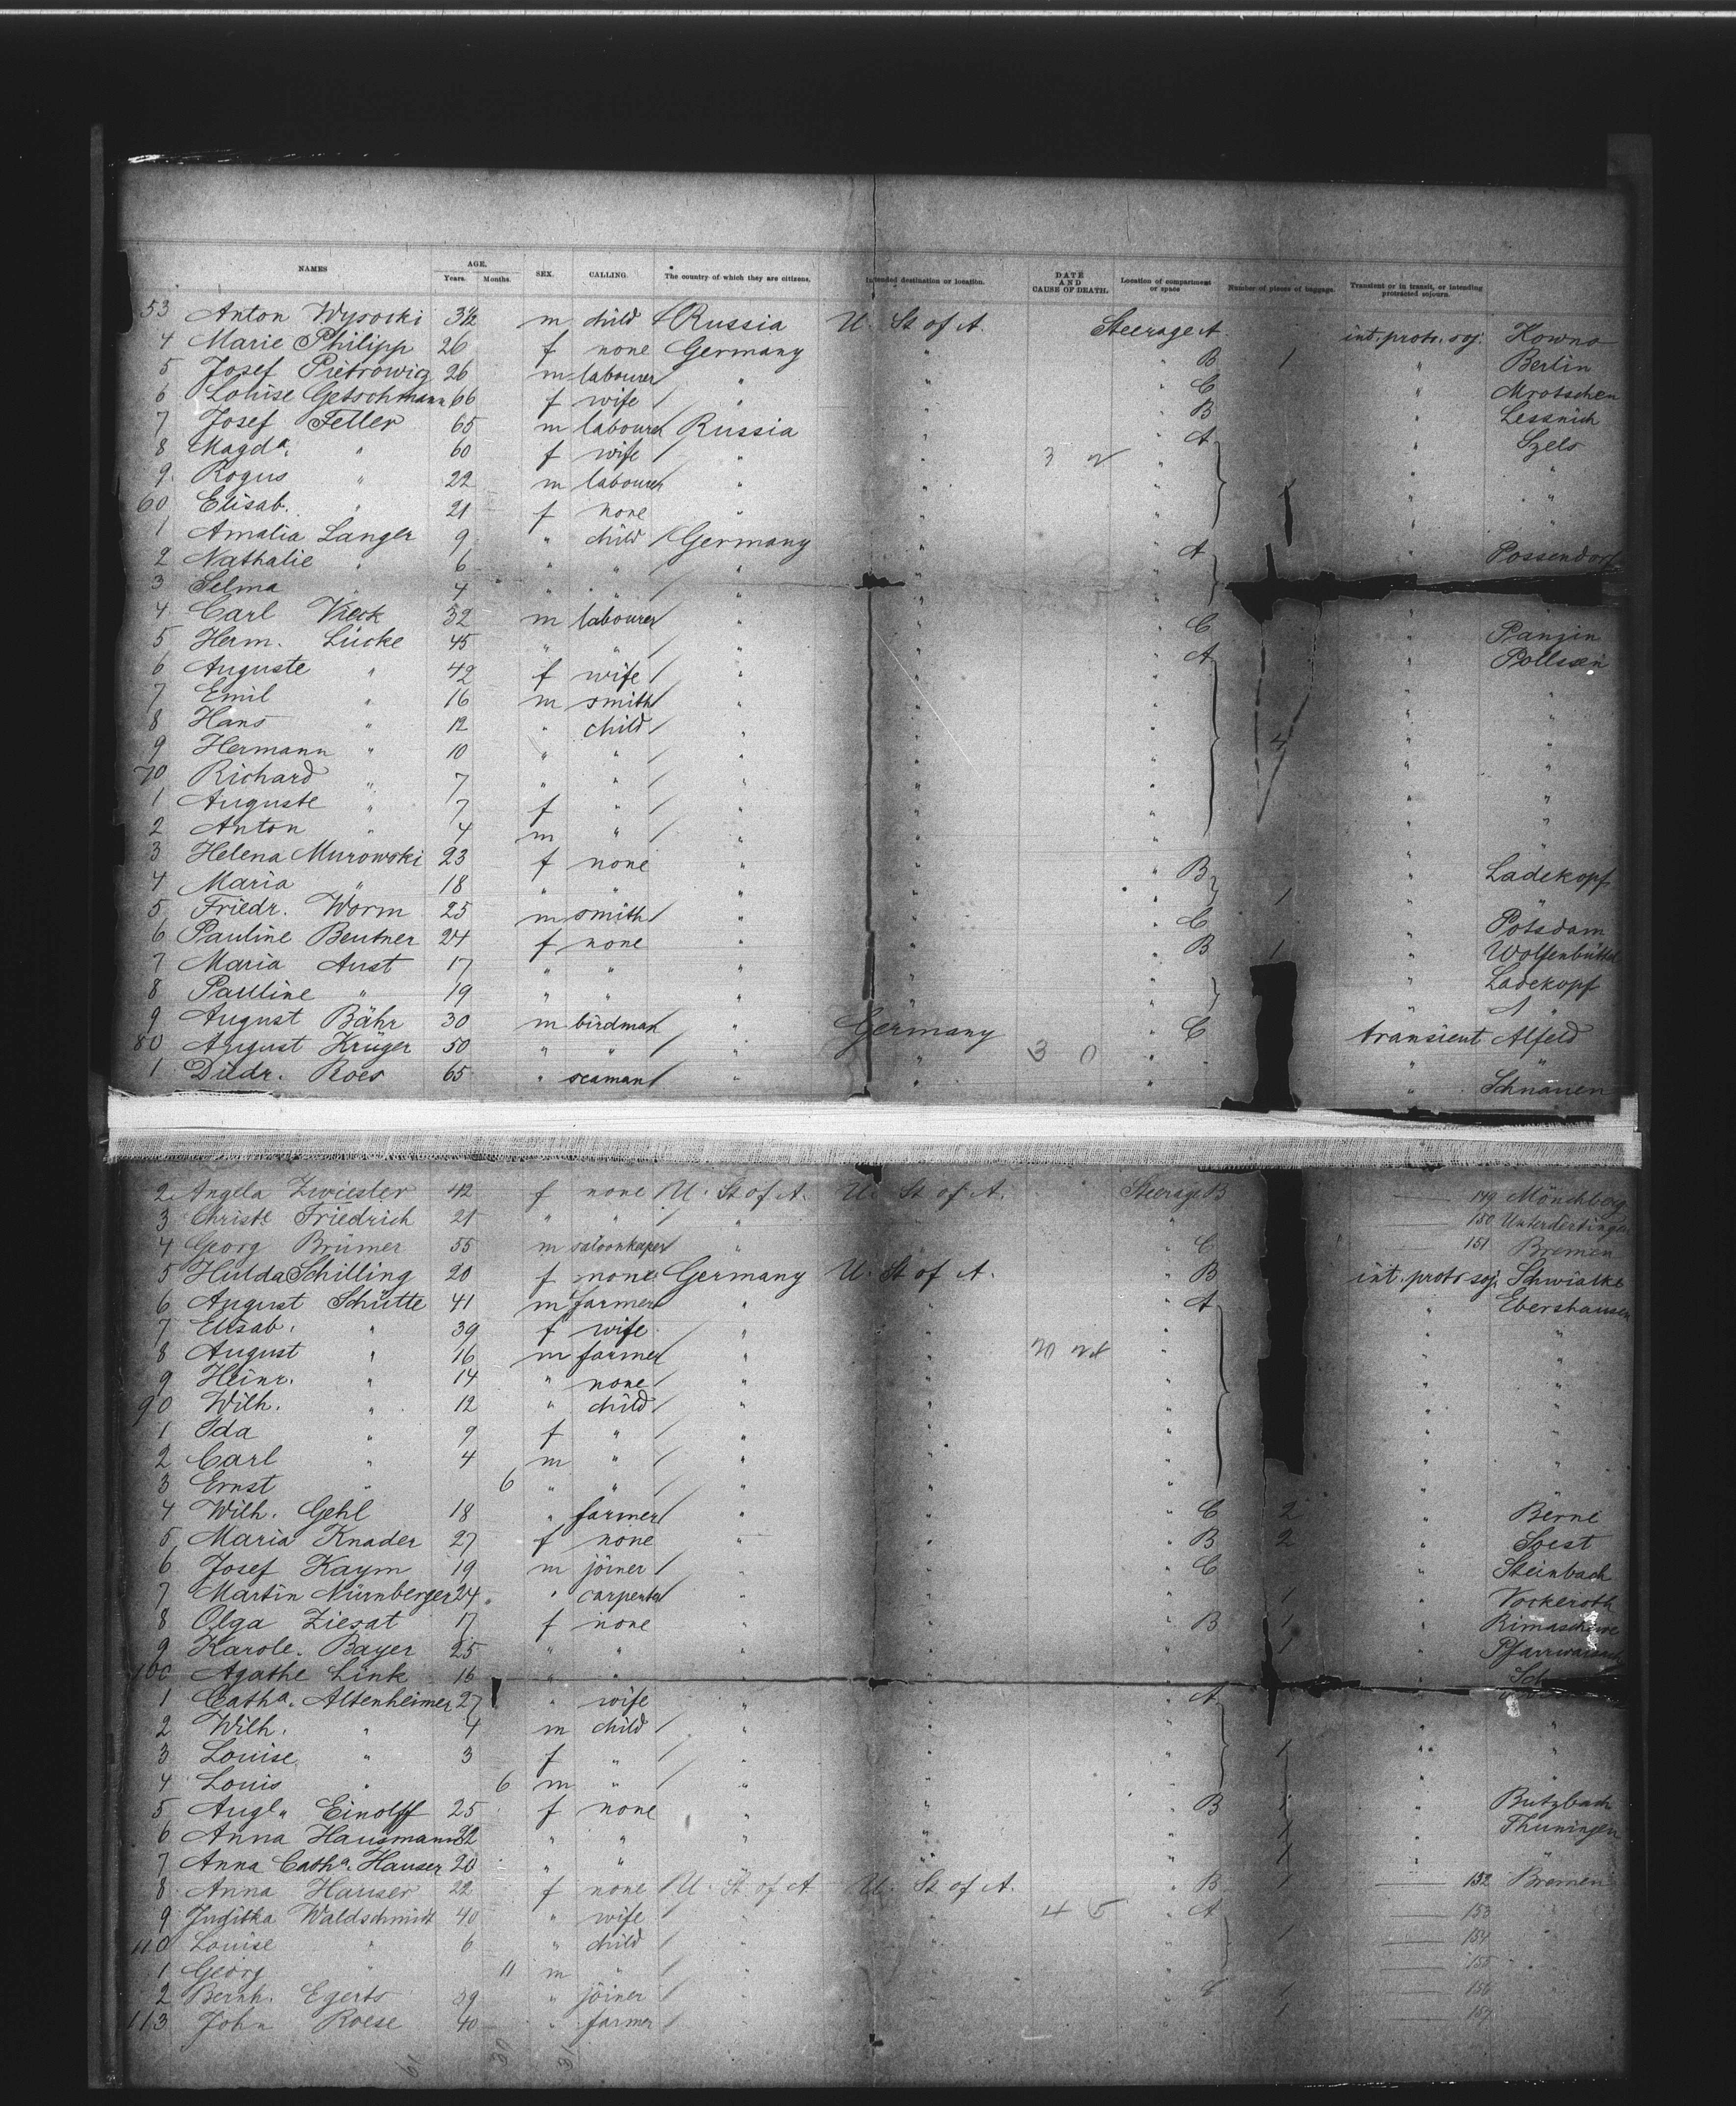 NAMES AGE. Years. Months. SEX. CALLING. The country of which they are citizens. Intended destination or location. DATE AND CAUSE OF DEATH. Location of compartment or space Number of pieces of baggage. Transient or in transit, or intending protracted sojourn.
53 Anton Wysocki 3½ m child Russia U. St of A. Steerage A int. protr. soj. Kowno
4 Marie Philipp 26 f none Germany " " B 1 " Berlin
5 Josef Pietrowicz 26 m labourer " " " C " Mrotschen
6 Louise Getschmann 66 f wife " " " B " Lessnich
7 Josef Feller 65 m labourer Russia " " A " Szels
8 Magda. " 60 f wife " " 3 " " "
9 Rogus " 22 m labourer " " " 1 " "
60 Elisab. " 21 f none " " " "
1 Amalia Langer 9 " child Germany " " A " Possendorf
2 Nathalie " 6 " " " " "
3 Selma " 4 " " " "
4 Carl Vieck 32 m labourer " " " C " Panzin
5 Herm. Lücke 45 " " " " " A " Pollssen
6 Auguste " 42 f wife " " " " "
7 Emil " 16 m smith " " " " "
8 Hans " 12 " child " " " " "
9 Hermann " 10 " " " " " 4 " "
70 Richard " 7 " " " " " " "
1 Auguste " 7 f " " " " " "
2 Anton " 4 m " " " " " "
3 Helena Murowski 23 f none " " " B " Ladekopf
4 Maria " 18 " " " " " 1 " "
5 Friedr. Worm 25 m smith " " " C " Potsdam
6 Pauline Beutner 24 f none " " " B 1 " Wolfenbüttel
7 Maria Aust 17 " " " " " " Ladekopf
8 Pauline " 19 " " " " " " "
9 August Bähr 30 m birdman " Germany " C transient Alfeld
80 August Krüger 50 " " " " 3 0 " " "
1 Diedr. Roes 65 " seaman " " " " Schnauen
2 Angela Zwiesler 42 f none U. St of A. U. St of A. Steerage B 149 Mönchberg
3 Christe Friedrich 21 " " " " 150
4 Georg Brümer 55 m saloonkeeper " " C 151 Bremen
5 Hulda Schilling 20 f none Germany U. St of A. " B int. protr soj. Schwialke
6 August Schütte 41 m farmer " " " A " Ebershausen
7 Elisab. " 39 f wife " " " " "
8 August " 16 m farmer " " 20 " " "
9 Heinr. " 14 " none " " " " "
90 Wilh. " 12 " child " " " " "
1 Ida " 9 f " " " " " "
2 Carl " 4 m " " " " " "
3 Ernst " 6 " " " " " " "
4 Wilh. Gehl 18 " farmer " " " C 2 " Berne
5 Maria Knader 27 f none " " " B 2 " Soest
6 Josef Kaym 19 m joiner " " " C " Steinbach
7 Martin Nürnberger 24 " carpenter " " " 1 " Vockeroth
8 Olga Ziesat 17 f none " " " B 1 "
9 Karole. Bayer 25 " " " " " 1 "
100 Agathe Link 16 " " " " "
1 Catha. Altenheimer 27 " wife " " " A
2 Wilh. " 4 m child " " " " "
3 Louise " 3 f " " " " 1 " "
4 Louis " 6 m " " " " " "
5 Einolff 25 f none " " " B 1 " Butzbach
6 Anna Hausmann 22 " " " " " 1 " Thuningen
7 Anna Catha. Hauser 20 " " " " 1 " "
8 Anna Hauser 22 f none U. St of A U. St. of A. " B 1 152 Bremen
9 Juditka Waldschmidt 40 " wife " " 4 5 " A 153 "
110 Louise " 6 " child " " " 1 154 "
1 Georg " 11 m " " " " 155 "
2 Bernh. Egerts 39 " joiner " " " C 1 156
113 John Roese 40 " farmer " " " 1 157